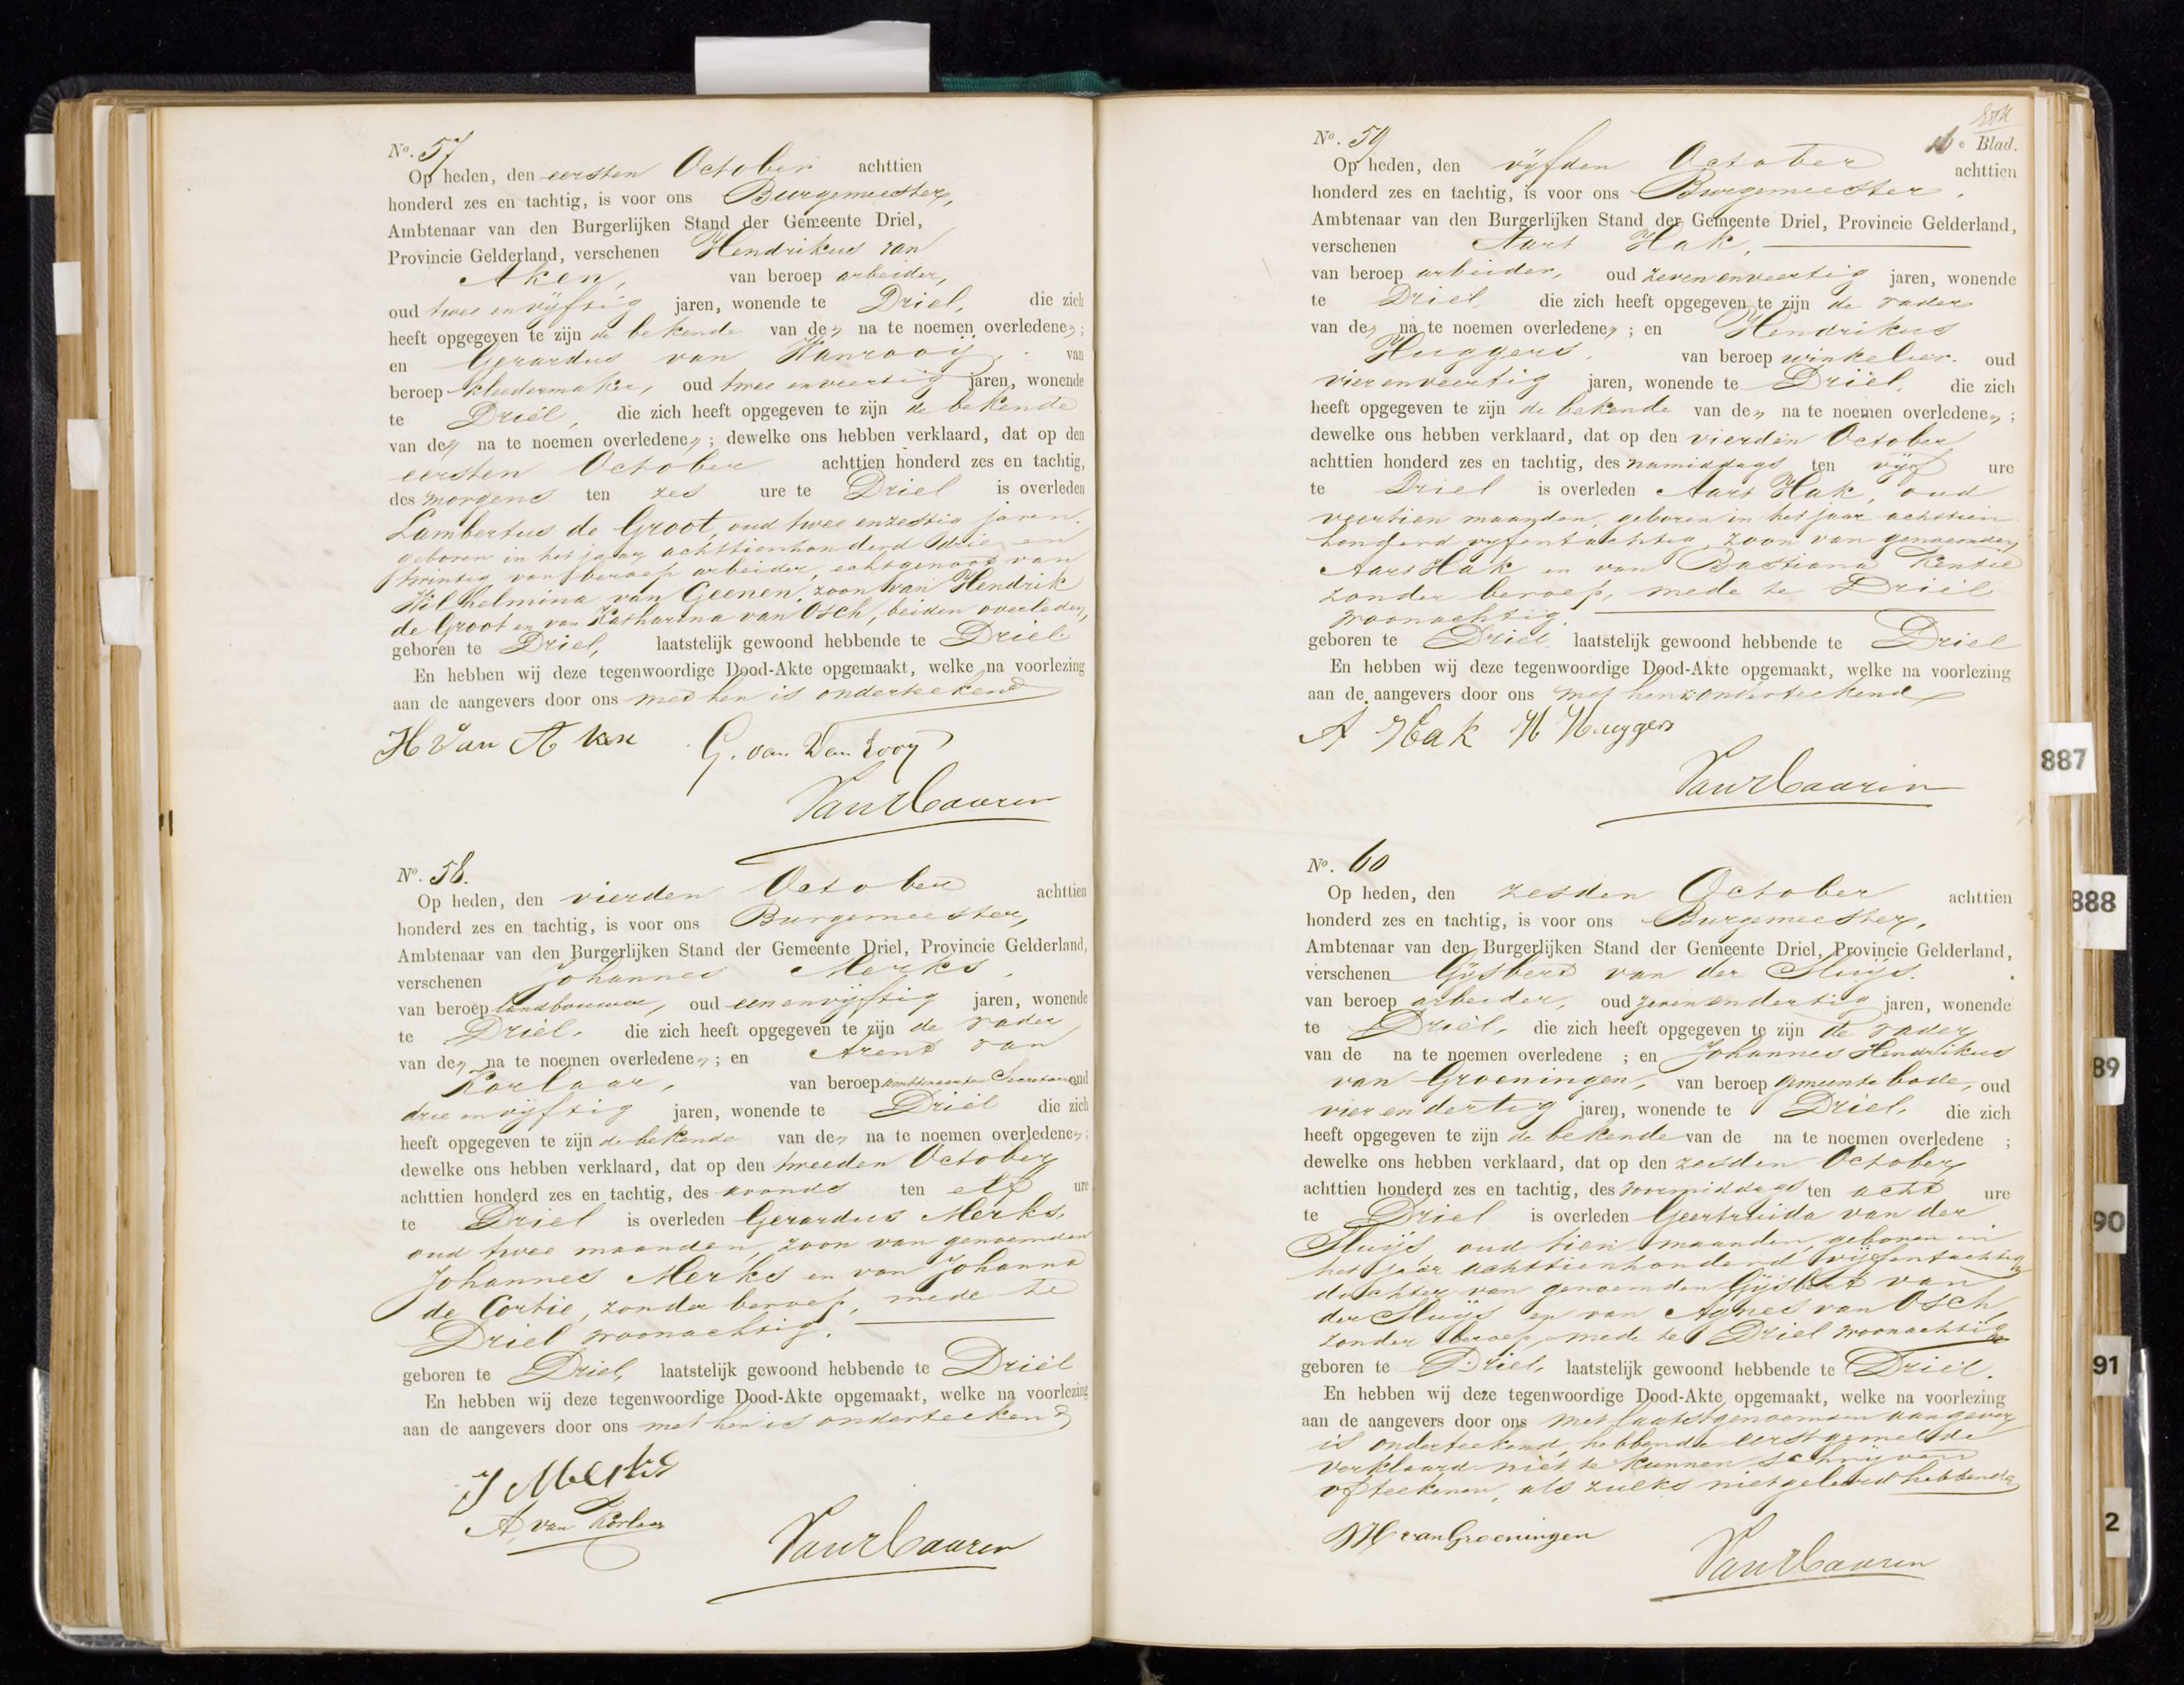 No. 57
Op heden, den eersten October achttien
honderd zes en tachtig, is voor ons Burgemeester,
Ambtenaar van den Burgerlijken Stand der Gemeente Driel,
Provincie Gelderland, verschenen Hendrikus van
Aken, van beroep arbeider,
oud twee en vijftig jaren, wonende te Driel, die zich
heeft opgegeven te zijn de bekende van de na te noemen overledene;
en Gerardus van Wanrooij van
beroep kleedermaker, oud twee en veertig jaren, wonende
te Driel, die zich heeft opgegeven te zijn de bekende
van de na te noemen overledene; dewelke ons hebben verklaard, dat op den
eersten October achttien honderd zes en tachtig,
des morgens ten zes ure te Driel is overleden
Lambertus de Groot, oud twee en zestig jaren.
geboren in het jaar achttienhonderd drie en
twintig, van beroep arbeider, echtgenoot van
Wilhelmina van Geenen, zoon van Hendrik
de Groot en van Katharina van Osch, beiden overleden,
geboren te Driel, laatstelijk gewoond hebbende te Driel.
En hebben wij deze tegenwoordige Dood-Akte opgemaakt, welke na voorlezing
aan de aangevers door ons met hen is onderteekend
H Van Aken G. van Wanrooy
Van Haaren
No. 58.
Op heden, den vierden October achttien
honderd zes en tachtig, is voor ons Burgemeester,
Ambtenaar van den Burgerlijken Stand der Gemeente Driel, Provincie Gelderland,
verschenen Johannes Merks,
van beroep landbouwer, oud een en vijftig jaren, wonende
te Driel, die zich heeft opgegeven te zijn de vader
van de na te noemen overledene; en Arend van
Korlaar, van beroep oud
drie en vijftig jaren, wonende te Driel die zich
heeft opgegeven te zijn de bekende van de na te noemen overledene;
dewelke ons hebben verklaard, dat op den tweeden October
achttien honderd zes en tachtig, des avonds ten elf ure
te Driel is overleden Gerardus Merks,
oud twee maanden, zoon van genoemden
Johannes Merks en van Johanna
de Cortie, zonder beroep, mede te
Driel woonachtig.
geboren te Driel, laatstelijk gewoond hebbende te Driel
En hebben wij deze tegenwoordige Dood-Akte opgemaakt, welke na voorlezing
aan de aangevers door ons met hen is onderteekend
J Merks
A. van Korlaar
Van Haaren
No. 59
e Blad.
Op heden, den vijfden October achttien
honderd zes en tachtig, is voor ons Burgemeester,
Ambtenaar van den Burgerlijken Stand der Gemeente Driel, Provincie Gelderland,
verschenen Aart Hak,
van beroep arbeider, oud zeven en veertig jaren, wonende
te Driel, die zich heeft opgegeven te zijn de vader
van de na te noemen overledene; en Hendrikus
Huggers, van beroep winkelier. oud
vier en veertig jaren, wonende te Driel, die zich
heeft opgegeven te zijn de bekende van de na te noemen overledene;
dewelke ons hebben verklaard, dat op den vierden October
achttien honderd zes en tachtig, des namiddags ten vijf ure
te Driel is overleden Aart Hak, oud
veertien maanden, geboren in het jaar achttien
honderd vijfentachtig, zoon van genoemden
Aart Hak en van Bastiana Kentie
zonder beroep, mede te Driel
woonachtig.
geboren te Driel laatstelijk gewoond hebbende te Driel
En hebben wij deze tegenwoordige Dood-Akte opgemaakt, welke na voorlezing
aan de aangevers door ons met hen is onderteekend
A Hak H Huggers
Van Haaren
No. 60
Op heden, den zesden October achttien
honderd zes en tachtig, is voor ons Burgemeester,
Ambtenaar van den Burgerlijken Stand der Gemeente Driel, Provincie Gelderland,
verschenen Gijsbert van der Sluijs.
van beroep arbeider, oud zeven en dertig jaren, wonende
te Driel, die zich heeft opgegeven te zijn de vader
van de na te noemen overledene ; en Johannes Hendrikus
van Groeningen, van beroep gemeente bode, oud
vier en dertig jaren, wonende te Driel, die zich
heeft opgegeven te zijn de bekende van de na te noemen overledene ;
dewelke ons hebben verklaard, dat op den zesden October
achttien honderd zes en tachtig, des voormiddags ten acht ure
te Driel is overleden Geertruida van der
Sluijs, oud tien maanden, geboren in
het jaar achttienhonderd vijfentachtig
dochter van genoemden Gijsbert van
der Sluijs en van Agnes van Osch,
zonder beroep, mede te Driel woonachtig
geboren te Driel, laatstelijk gewoond hebbende te Driel.
En hebben wij deze tegenwoordige Dood-Akte opgemaakt, welke na voorlezing
aan de aangevers door ons met laatstgenoemden aangever
is onderteekend, hebbende eerstgemelde
verklaard niet te kunnen schrijven
of teekenen, als zulks niet geleerd hebbende
JH van Groeningen
Van Haaren
887
888
89
90
91
2